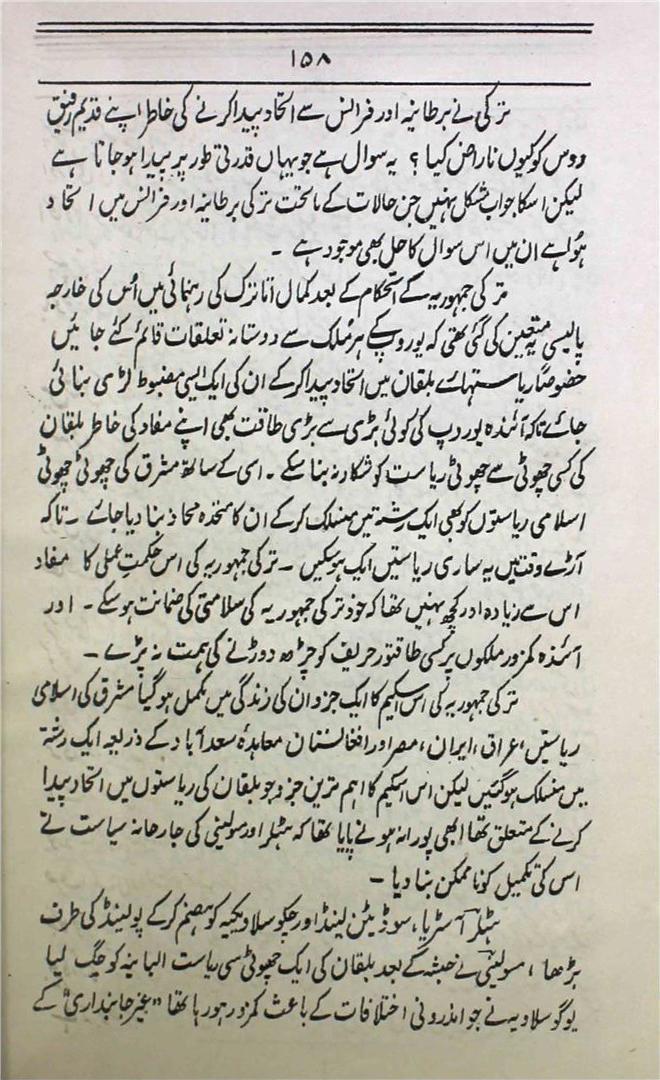 ۱۵۸
ترکی نے برطانیہ اور فرانس سے اتحاد پیدا کرنے کی خاطر اپنے قدیم رفیق
روس کو کیوں ناراض کیا؟ یہ سوال ہے جو یہاں قدرتی طور پر پیدا ہو جاتا ہے
لیکن اسکا جواب مشکل نہیں جن حالات کے ماتحت ترکی برطانیہ اور فرانس میں اتحاد
ہوا ہے ان میں اس سوال کا حل بھی موجود ہے۔
ترکی جمہوریہ کے استحکام کے بعد کمال اتاترک کی رہنمائی میں اُس کی خارجہ
پالیسی یہ متعین کی گئی تھی کہ یوروپ کے ہر ملک سے دوستانہ تعلقات قائم کئے جائیں
خصوصاً ریاستہائے بلقان میں اتحاد پیدا کر کے ان کی ایک ایسی مضبوط لڑی بنائی
جائے تاکہ آئندہ یوروپ کی کوئی بڑی سے بڑی طاقت بھی اپنے مفاد کی خاطر بلقان
کی کسی چھوٹی سے چھوٹی ریاست کو شکار نہ بنا سکے۔ اسی کے ساتھ مشرق کی چھوٹی چھوٹی
اسلامی ریاستوں کو بھی ایک رشتہ میں منسلک کر کے ان کا متحدہ محاذ بنا دیا جائے۔ تاکہ
آڑے وقت میں یہ ساری ریاستیں ایک ہو سکیں۔ ترکی جمہوریہ کی اس حکمت عملی کا مفاد
اس سے زیادہ اور کچھ نہیں تھا کہ خود ترکی جمہوریہ کی سلامتی کی ضمانت ہو سکے۔ اور
آئندہ کمزور ملکوں پر کسی طاقتور حریف کو چڑھ دوڑنے کی ہمت نہ پڑے۔
ترکی جمہوریہ کی اس اسکیم کا ایک جزو ان کی زندگی میں مکمل ہو گیا مشرق کی اسلامی
ریاستیں، عراق، ایران، مصر اور افغانستان معاہدۂ سعد آباد کے ذریعہ ایک رشتہ
میں منسلک ہو گئیں لیکن اس اسکیم کا اہم ترین جزو جو بلقان کی ریاستوں میں اتحاد پیدا
کرنے کے متعلق تھا ابھی پورا نہ ہونے پایا تھا کہ ہٹلر اور مسولینی کی جارحانہ سیاست نے
اس کی تکمیل کو ناممکن بنا دیا۔
ہٹلر آسٹریا، سوڈیٹن لینڈ اور چیکوسلاویکیہ کو ہضم کر کے پولینڈ کی طرف
بڑھا، مسولینی نے حبشہ کے بعد بلقان کی ایک چھوٹی سی ریاست البانیہ کو لیا
یوگوسلاویہ نے جو اندرونی اختلافات کے باعث کمزور ہو رہا تھا "غیر جانبداری" کے